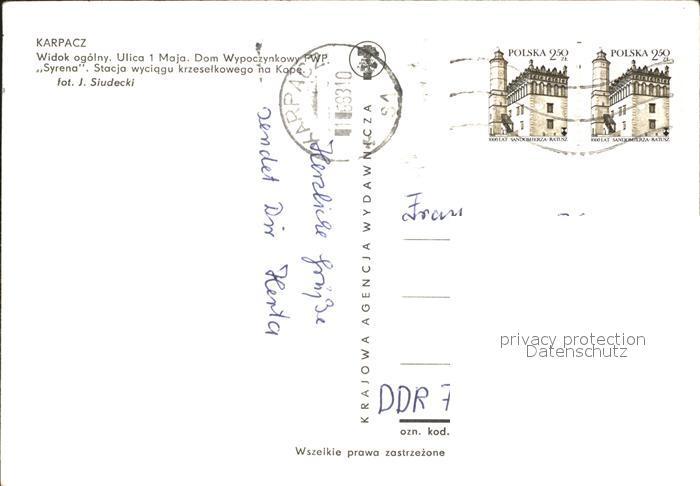 KARPACZ
Widok ogólny. Ulica 1 Maja. Dom Wypoczynkowy FWP.
„Syrena”. Stacja wyciągu krzesełkowego na Kopę.
fot. J. Siudecki
POLSKA 2,50 ZŁ
1000 LAT SANDOMIERZA-RATUSZ
POLSKA 2,50 ZŁ
1000 LAT SANDOMIERZA-RATUSZ
KARPACZ
Herzliche Grüße
sendet Dir Herta
KRAJOWA AGENCJA WYDAWNICZA
Frau
privacy protection
Datenschutz
DDR 7
ozn. kod.
Wszelkie prawa zastrzeżone